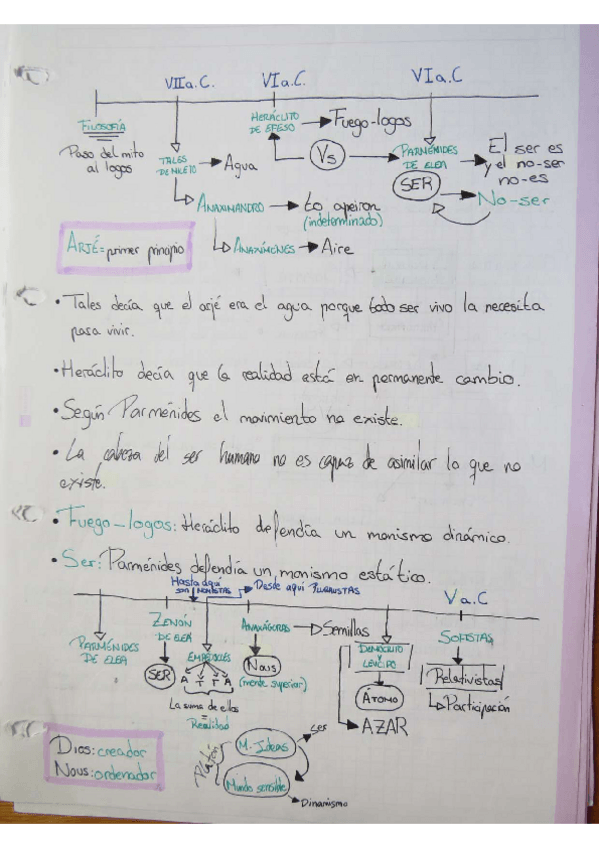 VII a.C. VI a.C. VI a.C
FILOSOFÍA
Paso del mito
al logos
TALES
DE MILETO → Agua
HERÁCLITO
DE ÉFESO → Fuego-logos
Vs
PARMÉNIDES
DE ELEA
SER
El ser es
y el no-ser
no-es
No-ser
ANAXIMANDRO → to apeiron
(indeterminado)
ANAXÍMENES → Aire
ARJÉ = primer principio
• Tales decía que el arjé era el agua porque todo ser vivo la necesita
para vivir.
• Heráclito decía que la realidad está en permanente cambio.
• Según Parménides el movimiento no existe.
• La cabeza del ser humano no es capaz de asimilar lo que no
existe.
• Fuego-logos: Heráclito defendía un monismo dinámico.
• Ser: Parménides defendía un monismo estático.
Hasta aquí
son MONISTAS
Desde aquí PLURALISTAS
V a.C
PARMÉNIDES
DE ELEA
ZENÓN
DE ELEA
SER
EMPÉDOCLES
A T F A
La suma de ellos
=
Realidad
ANAXÁGORAS → Semillas
Nous
(mente superior)
DEMÓCRITO
Y
LEUCIPO
ÁTOMO
AZAR
SOFISTAS
Relativistas
Participación
Dios: creador
Nous: ordenador
Platón
M. Ideas
ser
Mundo sensible
Dinamismo